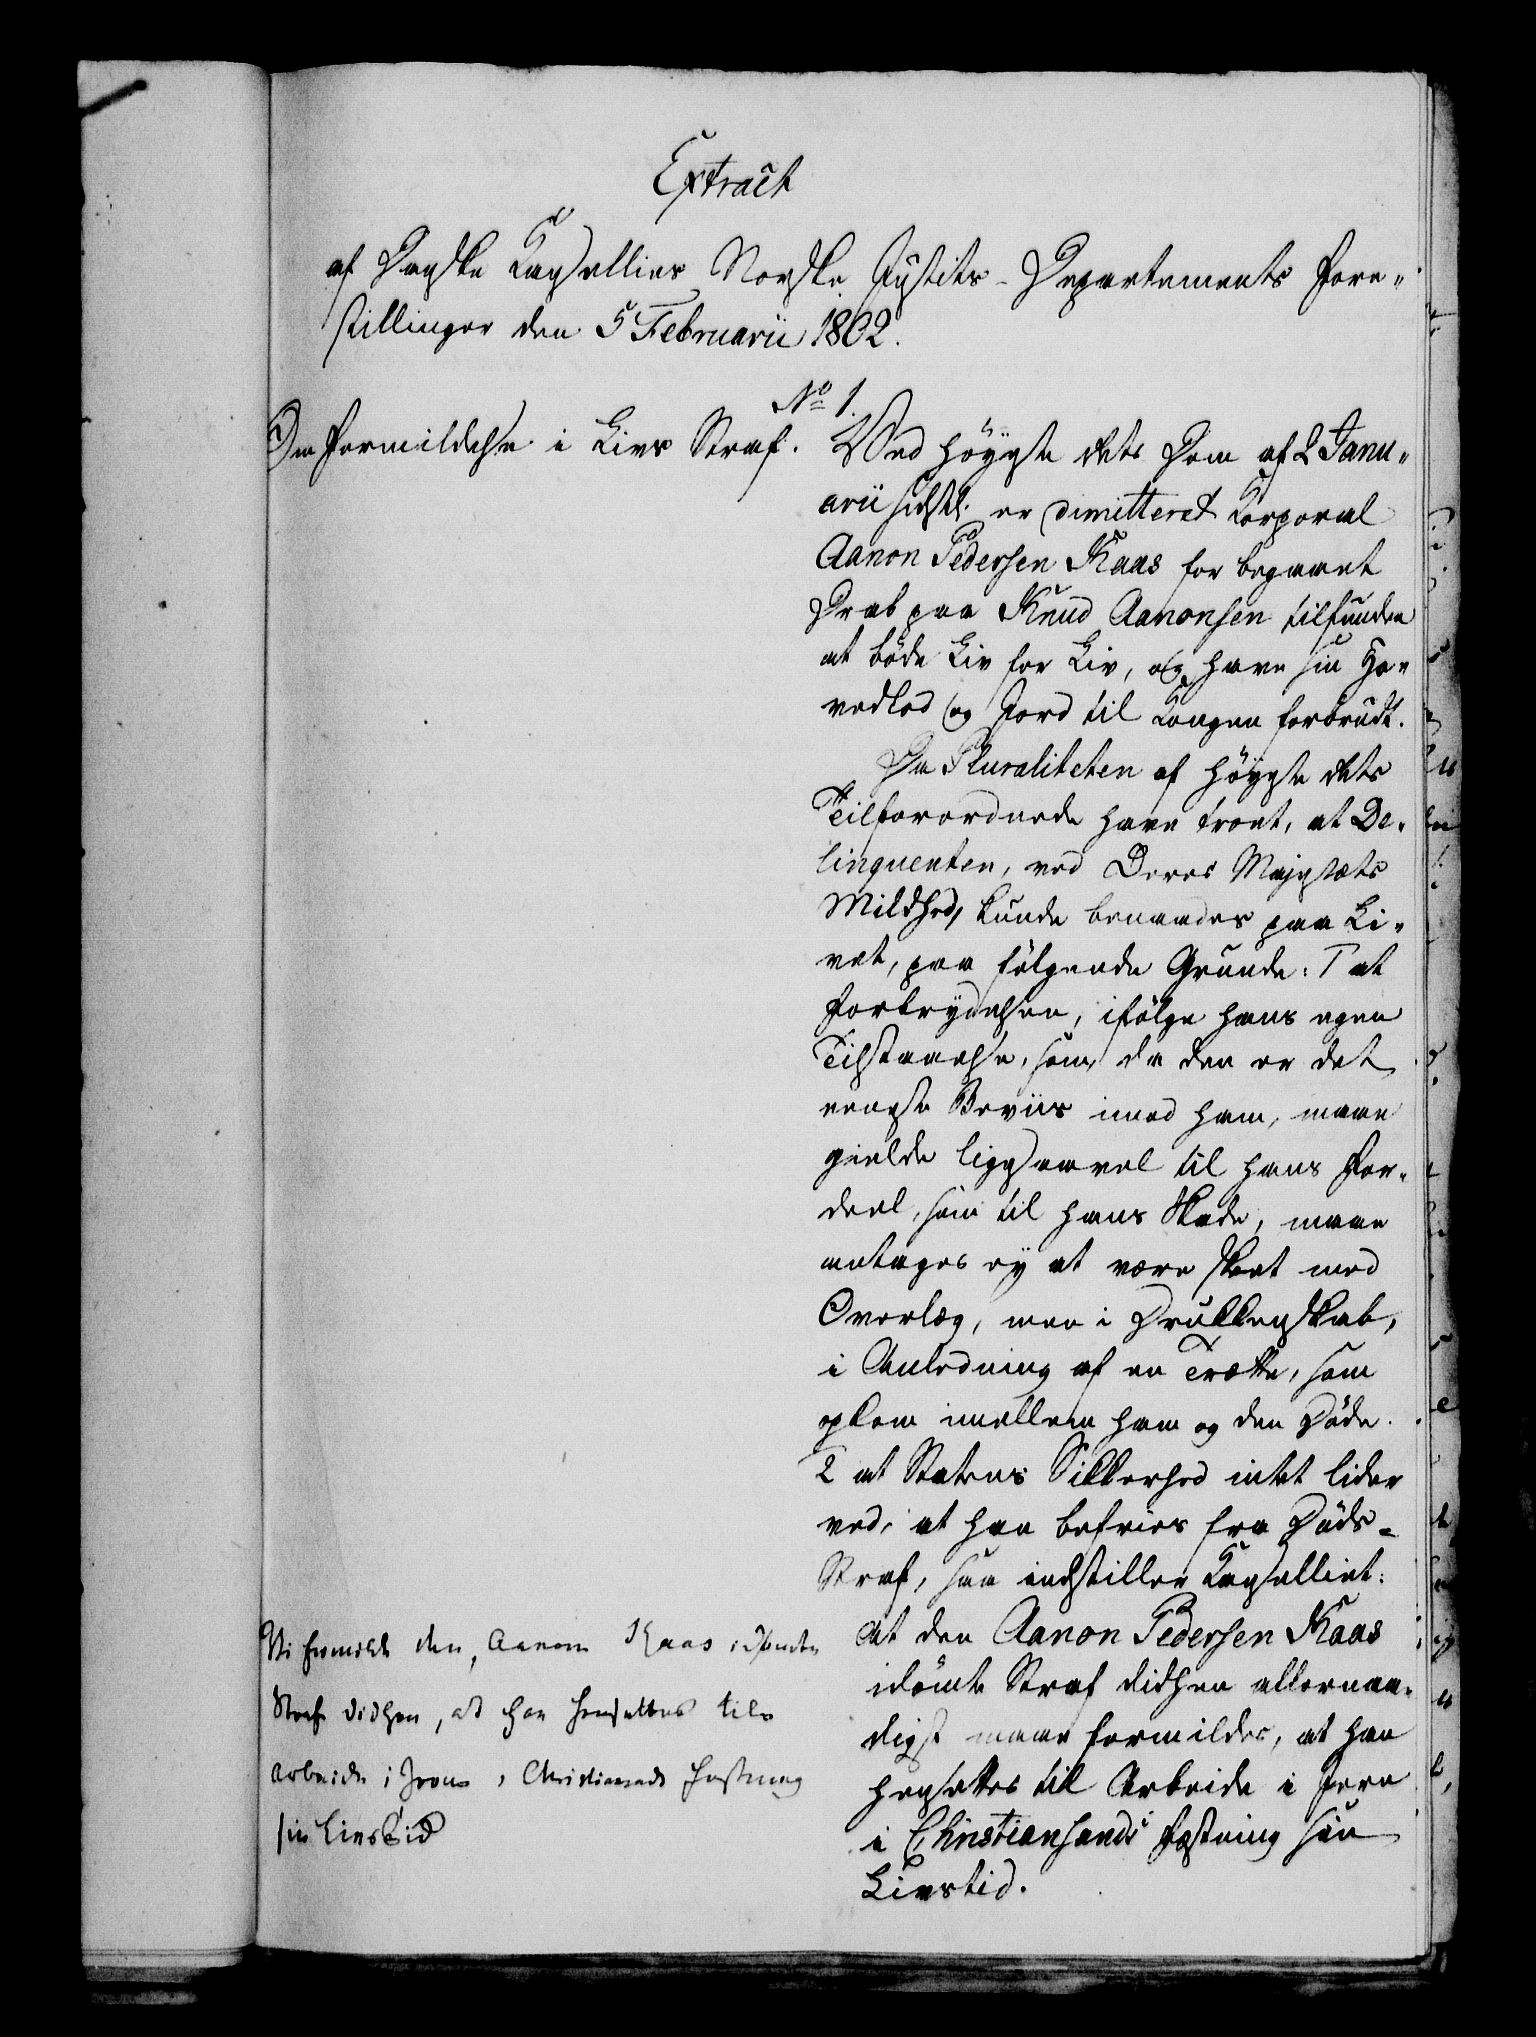 Extract
af Danske Cancellies Norske Justits-Departements Fore„
stillinger den 5 Februarii 1802.
No 1.
Om Formildelse i Livs Straf.
Ved Höyeste Rets Dom af 2 Janu„
arii sidstl. er dimitteret Corporal
Aanon Pedersen Kaas for begaaet
Drab paa Knud Aanonsen tilfunden
at böde Liv for Liv, og have sin Ho„
vedlod og Jord til Kongen forbrudt.
Da Pluraliteten af Höyeste Rets
Tilforordnede have troet, at De„
linquenten, ved Deres Majestæts
Mildhed, kunde benaades paa Li„
vet, paa fölgende Grunde: 1 at
Forbrydelsen, ifölge hans egen
Tilstaaelse, som, da den er det
eeneste Beviis imod ham, maae
gielde ligesaavel til hans For„
deel, som til hans Skade, maae
antages ey at være skeet med
Overlæg, men i Drukkenskab,
i Anledning af en Trætte, som
opkom imellem ham og den Döde.
2 at Statens Sikkerhed intet lider
ved, at han befries fra Döds-
Straf, saa indstiller Cancelliet:
at den Aanon Pedersen Kaas
idömte Straf didhen allernaa„
digst maae formildes, at han
hensættes til Arbeide i Jern
i Christiansands Fæstning sin
Livstid.
Vi formilde den, Aanon Kaas idömte
Straf didhen, at han hensættes til
arbeide i Jern i Christiansands Fæstning
sin Livstid